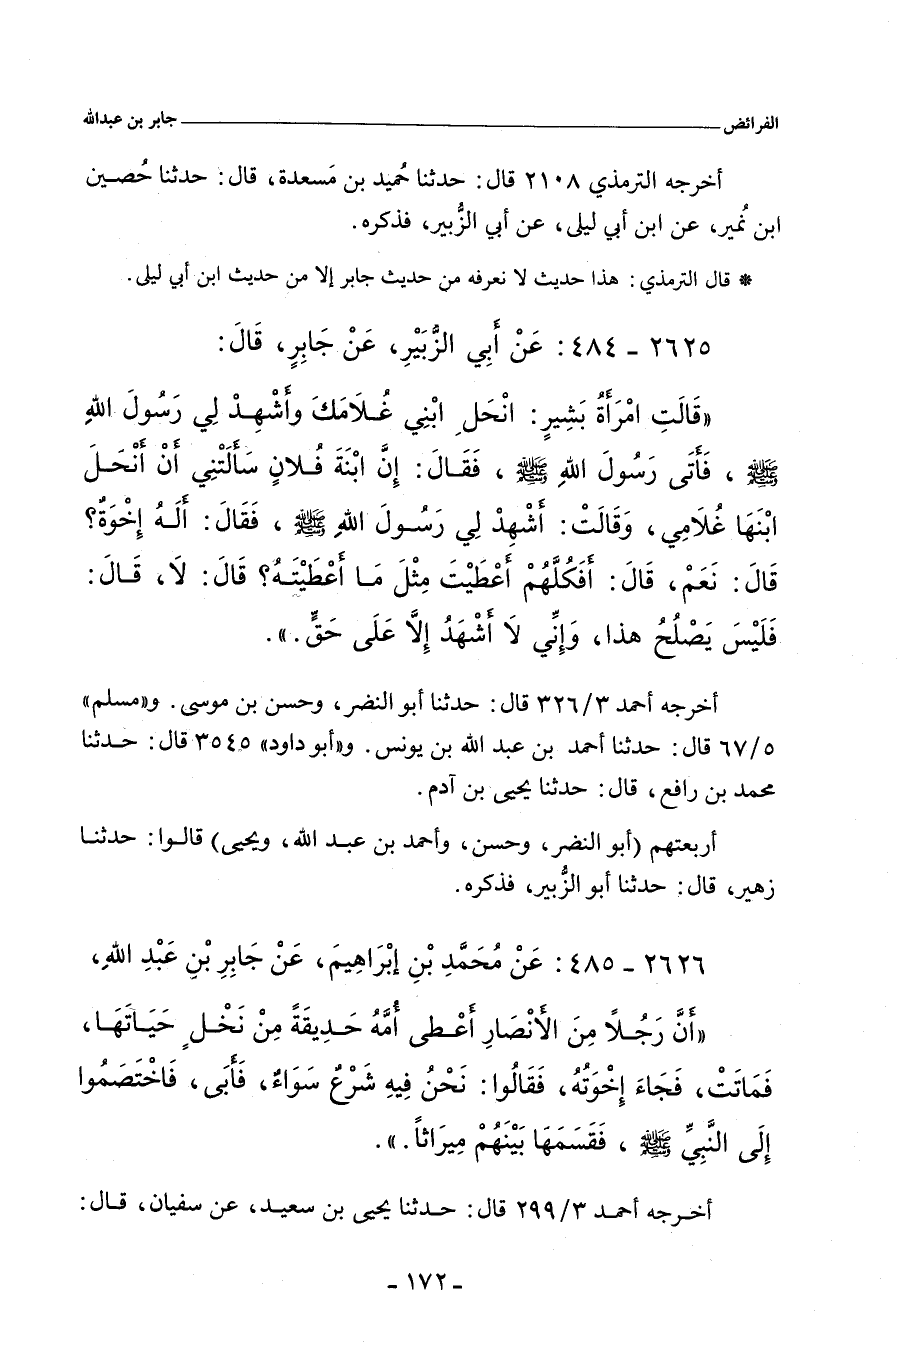 الفرائض ــــــــــــ جابر بن عبدالله
أخرجه الترمذي ٢١٠٨ قال: حدثنا حُميد بن مَسعدة، قال: حدثنا حُصـين
ابن نُمير، عن ابن أبي ليلى، عن أبي الزُّبير، فذكره.
* قال الترمذي: هذا حديث لا نعرفه من حديث جابر إلا من حديث ابن أبي ليلى.
٢٦٢٥ - ٤٨٤: عَنْ أَبِي الزُّبَيْرِ، عَنْ جَابِرٍ، قَالَ:
«قَالَتِ امْرَأَةُ بَشِيرٍ: انْحَل ِ ابْنِي غُـلَامَكَ وأَشْهِـدْ لِي رَسُولَ اللهِ
ﷺ ، فَأَتَى رَسُولَ اللهِ ﷺ ، فَقَـالَ: إِنَّ ابْنَةَ فُـلانٍ سَأَلَتْنِي أَنْ أَنْحَـلَ
ابْنَهَا غُلَامِي، وَقَالَتْ: أَشْهِدْ لِي رَسُـولَ اللهِ ﷺ ، فَقَالَ: أَلَـهُ إِخْوَةٌ؟
قَالَ: نَعَمْ، قَالَ: أَفَكُلَّهُمْ أَعْطَيْتَ مِثْلَ مَـا أَعْطَيْتَـهُ؟ قَالَ: لَا، قَـالَ:
فَلَيْسَ يَصْلُحُ هذا، وَإِنِّي لَا أَشْهَدُ إِلَّا عَلَى حَقٍّ.».
أخرجه أحمد ٣٢٦/٣ قال: حدثنا أبو النضر، وحسن بن موسى. و«مسلم»
٦٧/٥ قال: حدثنا أحمد بن عبد الله بن يونس. و«أبو داود» ٣٥٤٥ قال: حـدثنا
محمد بن رافع، قال: حدثنا يحيى بن آدم.
أربعتهم (أبو النضر، وحسن، وأحمد بن عبـد الله، ويحيى) قالـوا: حدثنـا
زهير، قال: حدثنا أبو الزُّبير، فذكره.
٢٦٢٦ - ٤٨٥: عَنْ مُحَمَّدِ بْنِ إِبْرَاهِيمَ، عَنْ جَابِرِ بْنِ عَبْدِ اللهِ،
«أَنَّ رَجُـلاً مِنَ الأَنْصَارِ أَعْـطى أُمَّهُ حَـدِيقَةً مِنْ نَخْـل ٍ حَيَـاتَهَـا،
فَمَاتَتْ، فَجَاءَ إِخْوَتُهُ، فَقَالُوا: نَحْنُ فِيهِ شَرْعٌ سَوَاءٌ، فَأَبَى، فَاخْتَصَمُوا
إِلَى النَّبِيِّ ﷺ ، فَقَسَمَهَا بَيْنَهُمْ مِيرَاثاً.».
أخـرجه أحمـد ٢٩٩/٣ قال: حـدثنا يحيى بن سعيـد، عن سفيان، قـال:
- ١٧٢ -